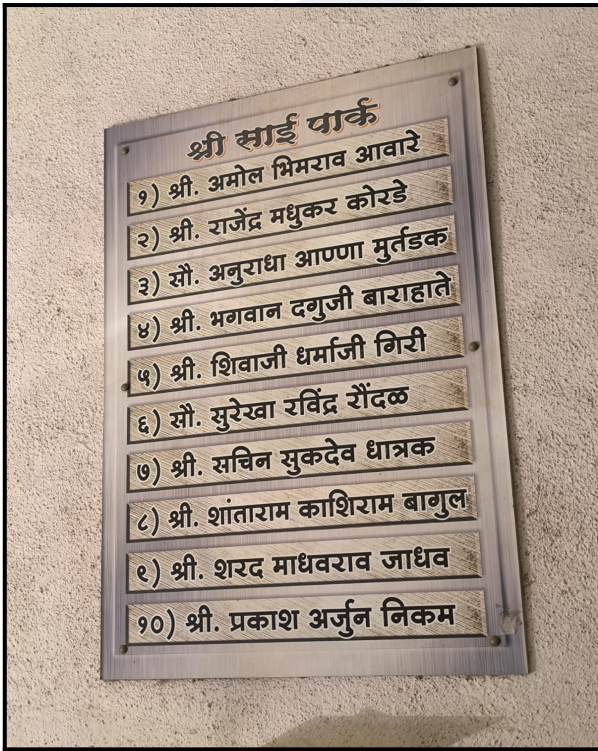 श्री साई पार्क
१) श्री. अमोल भिमराव आवारे
२) श्री. राजेंद्र मधुकर कोरडे
३) सौ. अनुराधा आण्णा मुर्तडक
४) श्री. भगवान दगुजी बाराहाते
५) श्री. शिवाजी धर्माजी गिरी
६) सौ. सुरेखा रविंद्र रौंदळ
७) श्री. सचिन सुकदेव धात्रक
८) श्री. शांताराम काशिराम बागुल
९) श्री. शरद माधवराव जाधव
१०) श्री. प्रकाश अर्जुन निकम